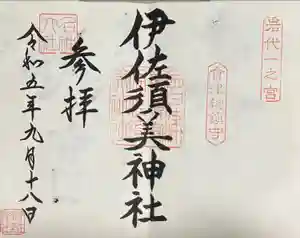 岩代一之宮
会津総鎮守
伊佐須美神社
参拝
令和五年九月十八日